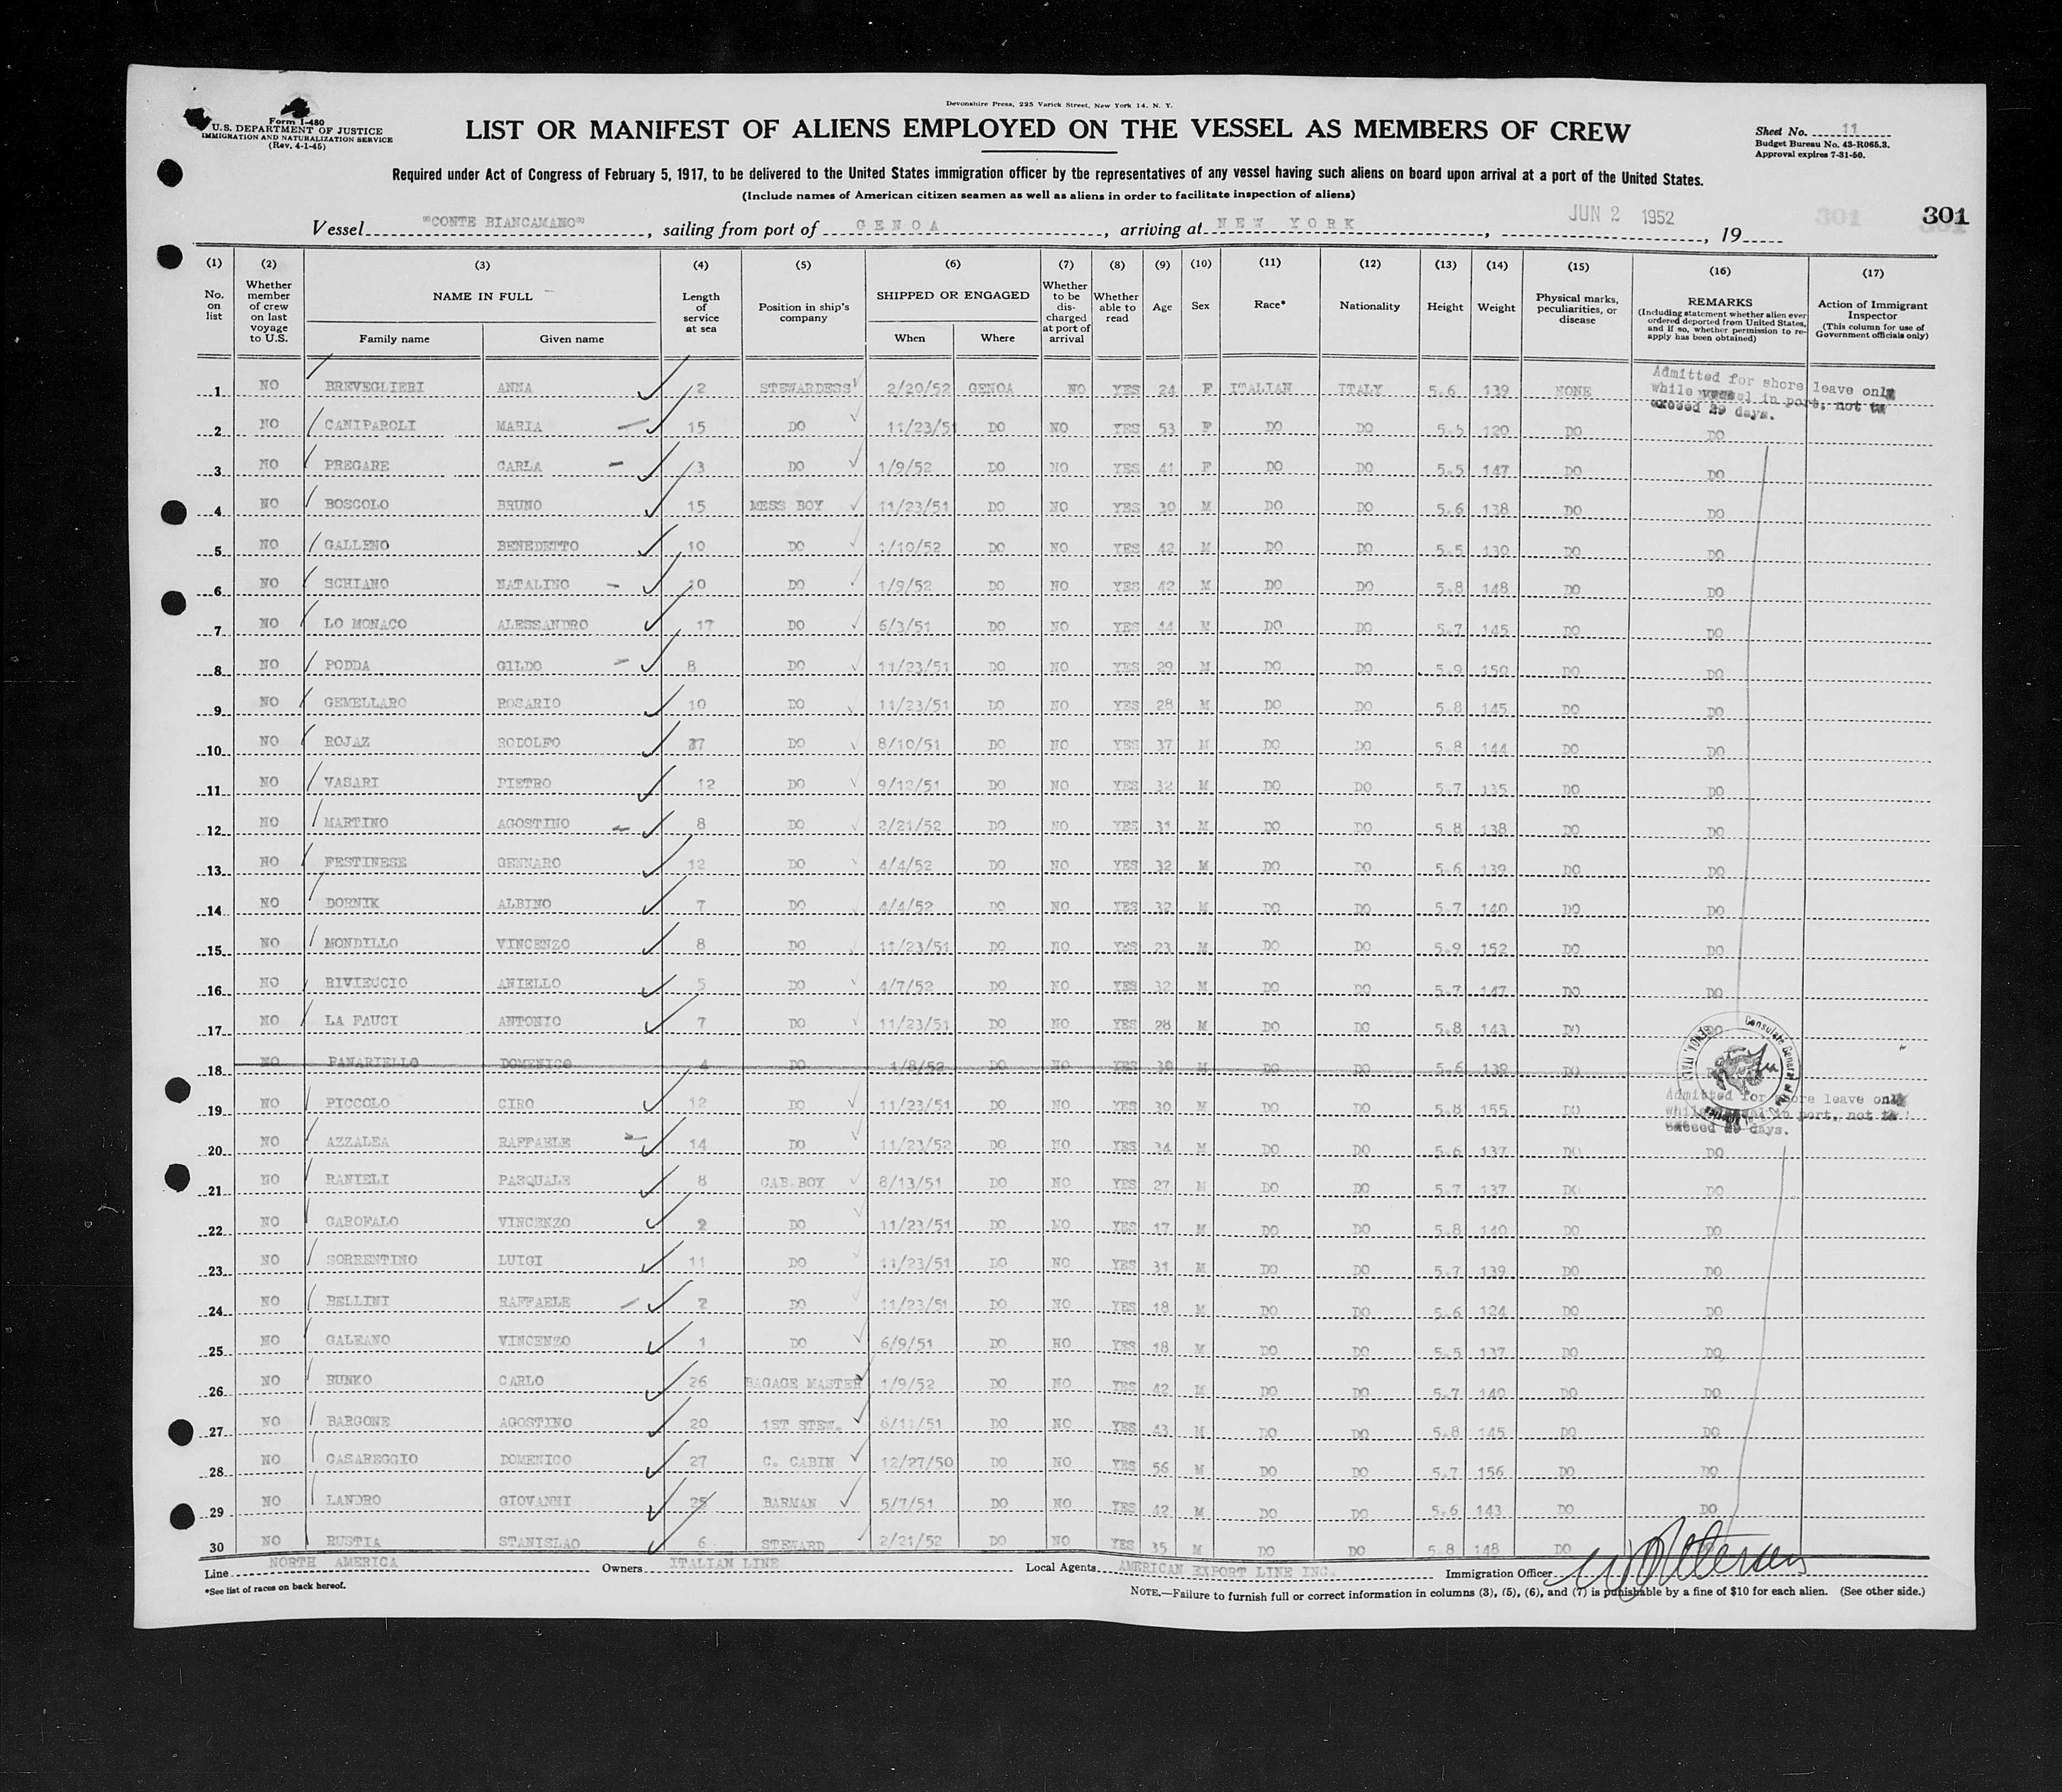 Devonshire Press, 225 Varick Street, New York 14, N. Y.
Form I-480
U.S. DEPARTMENT OF JUSTICE
IMMIGRATION AND NATURALIZATION SERVICE
(Rev. 4-1-45)
LIST OR MANIFEST OF ALIENS EMPLOYED ON THE VESSEL AS MEMBERS OF CREW
Sheet No. 11
Budget Bureau No. 43-R065.3.
Approval expires 7-31-50.
Required under Act of Congress of February 5, 1917, to be delivered to the United States immigration officer by the representatives of any vessel having such aliens on board upon arrival at a port of the United States.
(Include names of American citizen seamen as well as aliens in order to facilitate inspection of aliens)
Vessel "CONTE BIANCAMANO", sailing from port of GENOA, arriving at NEW YORK, JUN 2 1952, 19
301 301
(1) No. on list (2) Whether member of crew on last voyage to U.S. (3) NAME IN FULL Family name Given name (4) Length of service at sea (5) Position in ship's company (6) SHIPPED OR ENGAGED When Where (7) Whether to be discharged at port of arrival (8) Whether able to read (9) Age (10) Sex (11) Race* (12) Nationality (13) Height (14) Weight (15) Physical marks, peculiarities, or disease (16) REMARKS (Including statement whether alien ever ordered deported from United States, and if so, whether permission to reapply has been obtained) (17) Action of Immigrant Inspector (This column for use of Government officials only)
1 NO BREVEGLIERI ANNA 2 STEWARDESS 2/20/52 GENOA NO YES 24 F ITALIAN ITALY 5.6 139 NONE Admitted for shore leave only while vessel in port, not to exceed 29 days.
2 NO CANIPAROLI MARIA 15 DO 11/23/51 DO NO YES 53 F DO DO 5.5 120 DO DO
3 NO PREGARE CARLA 3 DO 1/9/52 DO NO YES 41 F DO DO 5.5 147 DO DO
4 NO BOSCOLO BRUNO 15 MESS BOY 11/23/51 DO NO YES 30 M DO DO 5.6 138 DO DO
5 NO GALLENO BENEDETTO 10 DO 1/10/52 DO NO YES 42 M DO DO 5.5 130 DO DO
6 NO SCHIANO NATALINO 10 DO 1/9/52 DO NO YES 42 M DO DO 5.8 148 DO DO
7 NO LO MONACO ALESSANDRO 17 DO 6/3/51 DO NO YES 44 M DO DO 5.7 145 DO DO
8 NO PODDA GILDO 8 DO 11/23/51 DO NO YES 29 M DO DO 5.9 150 DO DO
9 NO GEMELLARO ROSARIO 10 DO 11/23/51 DO NO YES 28 M DO DO 5.8 145 DO DO
10 NO ROJAZ RODOLFO DO 8/10/51 DO NO YES 37 M DO DO 5.8 144 DO DO
11 NO VASARI PIETRO 12 DO 9/12/51 DO NO YES 32 M DO DO 5.7 135 DO DO
12 NO MARTINO AGOSTINO 8 DO 2/21/52 DO NO YES 31 M DO DO 5.8 138 DO DO
13 NO FESTINESE GENNARO 12 DO 4/4/52 DO NO YES 32 M DO DO 5.6 139 DO DO
14 NO DORNIK ALBINO 7 DO 4/4/52 DO NO YES 32 M DO DO 5.7 140 DO DO
15 NO MONDILLO VINCENZO 8 DO 11/23/51 DO NO YES 23 M DO DO 5.9 152 DO DO
16 NO RIVIECCIO ANIELLO 5 DO 4/7/52 DO NO YES 32 M DO DO 5.7 147 DO DO
17 NO LA FAUCI ANTONIO 7 DO 11/23/51 DO NO YES 28 M DO DO 5.8 143 DO DO
18 NO PANARIELLO DOMENICO 4 DO 1/8/52 DO NO YES 30 M DO DO 5.6 139 DO
Consulate General of the
19 NO PICCOLO CIRO 12 DO 11/23/51 DO NO YES 30 M DO DO 5.8 155 DO Admitted for shore leave only while vessel in port, not to exceed 29 days.
20 NO AZZALEA RAFFAELE 14 DO 11/23/52 DO NO YES 34 M DO DO 5.6 137 DO DO
21 NO RANIELI PASQUALE 8 CAB.BOY 8/13/51 DO NO YES 27 M DO DO 5.7 137 DO DO
22 NO GAROFALO VINCENZO 2 DO 11/23/51 DO NO YES 17 M DO DO 5.8 140 DO DO
23 NO SORRENTINO LUIGI 11 DO 11/23/51 DO NO YES 31 M DO DO 5.7 139 DO DO
24 NO BELLINI RAFFAELE 2 DO 11/23/51 DO NO YES 18 M DO DO 5.6 124 DO DO
25 NO GALEANO VINCENZO 1 DO 6/9/51 DO NO YES 18 M DO DO 5.5 137 DO DO
26 NO RUNKO CARLO 26 BAGAGE MASTER 1/9/52 DO NO YES 42 M DO DO 5.7 140 DO DO
27 NO BARGONE AGOSTINO 20 1ST STEW. 6/11/51 DO NO YES 43 M DO DO 5.8 145 DO DO
28 NO CASAREGGIO DOMENICO 27 C. CABIN 12/27/50 DO NO YES 56 M DO DO 5.7 156 DO DO
29 NO LANDRO GIOVANNI 25 BARMAN 5/7/51 DO NO YES 42 M DO DO 5.6 143 DO DO
30 NO RUSTIA STANISLAO 6 STEWARD 2/21/52 DO NO YES 35 M DO DO 5.8 148 DO
Line NORTH AMERICA Owners ITALIAN LINE Local Agents AMERICAN EXPORT LINE INC. Immigration Officer
*See list of races on back hereof.
NOTE.—Failure to furnish full or correct information in columns (3), (5), (6), and (7) is punishable by a fine of $10 for each alien. (See other side.)